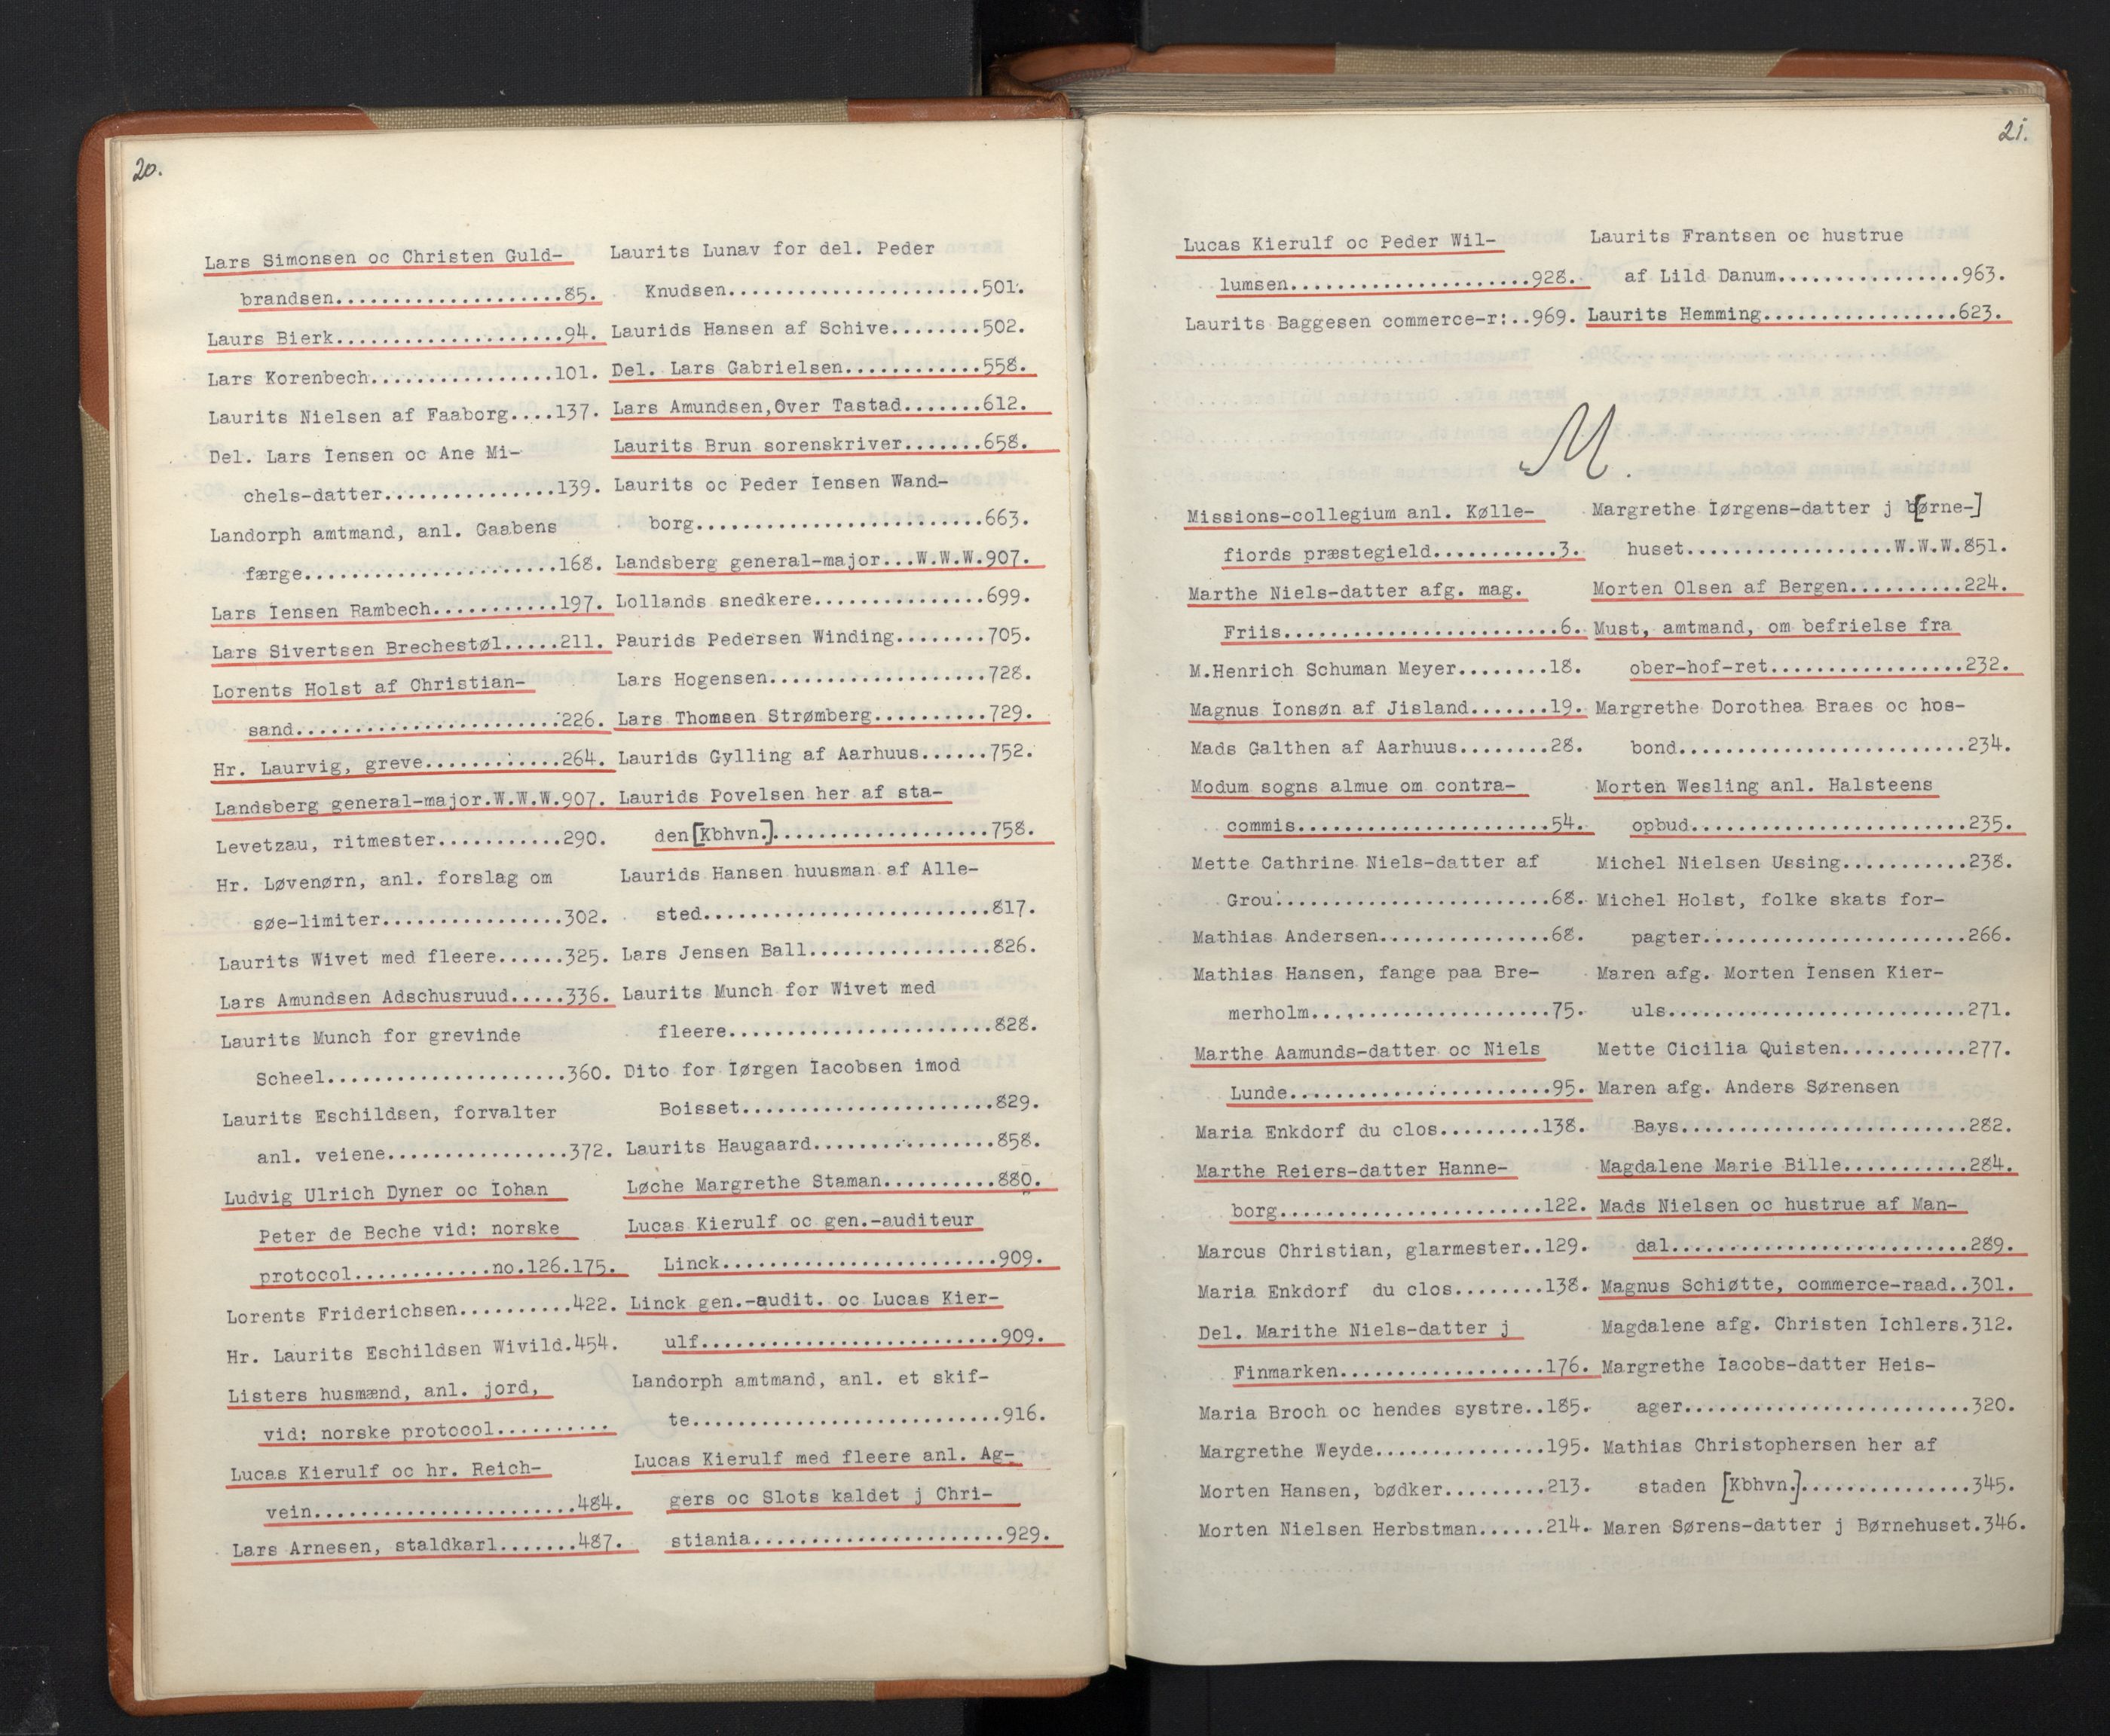 20.
Lars Simonsen oc Christen Guld-
brandsen....................85.
Laurs Bierk....................94.
Lars Korenbech................101.
Laurits Nielsen af Faaborg....137.
Del. Lars Iensen oc Ane Mi-
chels-datter...............139.
Landorph amtmand, anl. Gaabens
færge......................168.
Lars Iensen Rambech...........197.
Lars Sivertsen Brechestøl.....211.
Lorents Holst af Christian-
sand.......................226.
Hr. Laurvig, greve............264.
Landsberg general-major.W.W.W.907.
Levetzau, ritmester...........290.
Hr. Løvenørn, anl. forslag om
søe-limiter................302.
Laurits Wivet med fleere......325.
Lars Amundsen Adschusruud.....336.
Laurits Munch for grevinde
Scheel.....................360.
Laurits Eschildsen, forvalter
anl. veiene................372.
Ludvig Ulrich Dyner oc Iohan
Peter de Beche vid: norske
protocol............no.126.175.
Lorents Friderichsen..........422.
Hr. Laurits Eschildsen Wivild.454.
Listers husmænd, anl. jord,
vid: norske protocol..........
Lucas Kierulf oc hr. Reich-
vein.......................484.
Lars Arnesen, staldkarl.......487.
Laurits Lunav for del. Peder
Knudsen......................501.
Laurids Hansen af Schive........502.
Del. Lars Gabrielsen............558.
Lars Amundsen,Over Tastad.......612.
Laurits Brun sorenskriver.......658.
Laurits oc Peder Iensen Wand-
borg.........................663.
Landsberg general-major...W.W.W.907.
Lollands snedkere...............699.
Paurids Pedersen Winding........705.
Lars Hogensen...................728.
Lars Thomsen Strømberg..........729.
Laurids Gylling af Aarhuus......752.
Laurids Povelsen her af sta-
den[Kbhvn.]...................758.
Laurids Hansen huusman af Alle-
sted.........................817.
Lars Jensen Ball................826.
Laurits Munch for Wivet med
fleere.......................828.
Dito for Iørgen Iacobsen imod
Boisset......................829.
Laurits Haugaard................858.
Løche Margrethe Staman..........880.
Lucas Kierulf oc gen.-auditeur
Linck........................909.
Linck gen.-audit. oc Lucas Kier-
ulf..........................909.
Landorph amtmand, anl. et skif-
te...........................916.
Lucas Kierulf med fleere anl. Ag-
gers oc Slots kaldet j Chri-
stiania......................929.
21.
Lucas Kierulf oc Peder Wil-
lumsen.....................928.
Laurits Baggesen commerce-r:..969.
Laurits Frantsen oc hustrue
af Lild Danum................963.
Laurits Hemming.................623.
M.
Missions-collegium anl. Kølle-
fiords præstegield...........3.
Marthe Niels-datter afg. mag.
Friis........................6.
M.Henrich Schuman Meyer........18.
Magnus Ionsøn af Jisland.......19.
Mads Galthen af Aarhuus........28.
Modum sogns almue om contra-
commis......................54.
Mette Cathrine Niels-datter af
Grou........................68.
Mathias Andersen...............68.
Mathias Hansen, fange paa Bre-
merholm.....................75.
Marthe Aamunds-datter oc Niels
Lunde.......................95.
Maria Enkdorf du clos.........138.
Marthe Reiers-datter Hanne-
borg.......................122.
Marcus Christian, glarmester..129.
Maria Enkdorf du clos........138.
Del. Marithe Niels-datter j
Finmarken..................176.
Maria Broch oc hendes systre..185.
Margrethe Weyde...............195.
Morten Hansen, bødker.........213.
Morten Nielsen Herbstman......214.
Margrethe Iørgens-datter j b[ørne-]
huset..................W.W.W.851.
Morten Olsen af Bergen..........224.
Must, amtmand, om befrielse fra
ober-hof-ret.................232.
Margrethe Dorothea Braes oc hos-
bond.........................234.
Morten Wesling anl. Halsteens
opbud........................235.
Michel Nielsen Ussing...........238.
Michel Holst, folke skats for-
pagter.......................266.
Maren afg. Morten Iensen Kier-
uls..........................271.
Mette Cicilia Quisten...........277.
Maren afg. Anders Sørensen
Bays.........................282.
Magdalene Marie Bille...........284.
Mads Nielsen oc hustrue af Man-
dal..........................289.
Magnus Schiøtte, commerce-raad..301.
Magdalene afg. Christen Ichlers.312.
Margrethe Iacobs-datter Heis-
ager.........................320.
Mathias Christophersen her af
staden [Kbhvn.]...............345.
Maren Sørens-datter j Børnehuset.346.